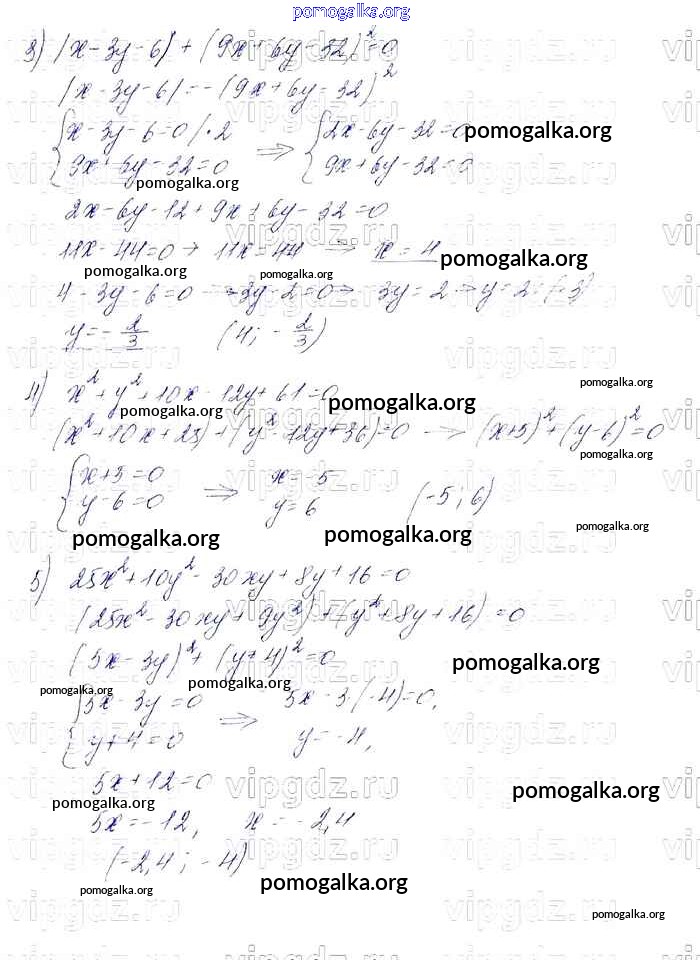 pomogalka.org
3) |x-3y-6| + (9x+6y-32)²=0
|x-3y-6| = -(9x+6y-32)²
{x-3y-6=0 |·2 ⇒ {2x-6y-32=0 pomogalka.org
9x+6y-32=0 9x+6y-32=0
pomogalka.org
2x-6y-12+9x+6y-32=0
11x-44=0 → 11x=44 ⇒ x=4 pomogalka.org
pomogalka.org pomogalka.org
4-3y-6=0 → -3y-2=0 → -3y=2 → y=2:(-3)
y=-2/3 (4; -2/3)
pomogalka.org
4) x²+y²+10x-12y+61=0
pomogalka.org pomogalka.org
(x²+10x+25)+(y²-12y+36)=0 → (x+5)²+(y-6)²=0
pomogalka.org
{x+5=0 ⇒ x=-5
y-6=0 y=6 (-5; 6)
pomogalka.org pomogalka.org pomogalka.org
5) 25x²+10y²-30xy+8y+16=0
(25x²-30xy+9y²)+(y²+8y+16)=0
(5x-3y)²+(y+4)²=0 pomogalka.org
pomogalka.org pomogalka.org
{5x-3y=0 ⇒ 5x-3·(-4)=0,
y+4=0 y=-4,
5x+12=0
pomogalka.org pomogalka.org
5x=-12, x=-2,4
(-2,4; -4)
pomogalka.org pomogalka.org
pomogalka.org
vipgdz.ru